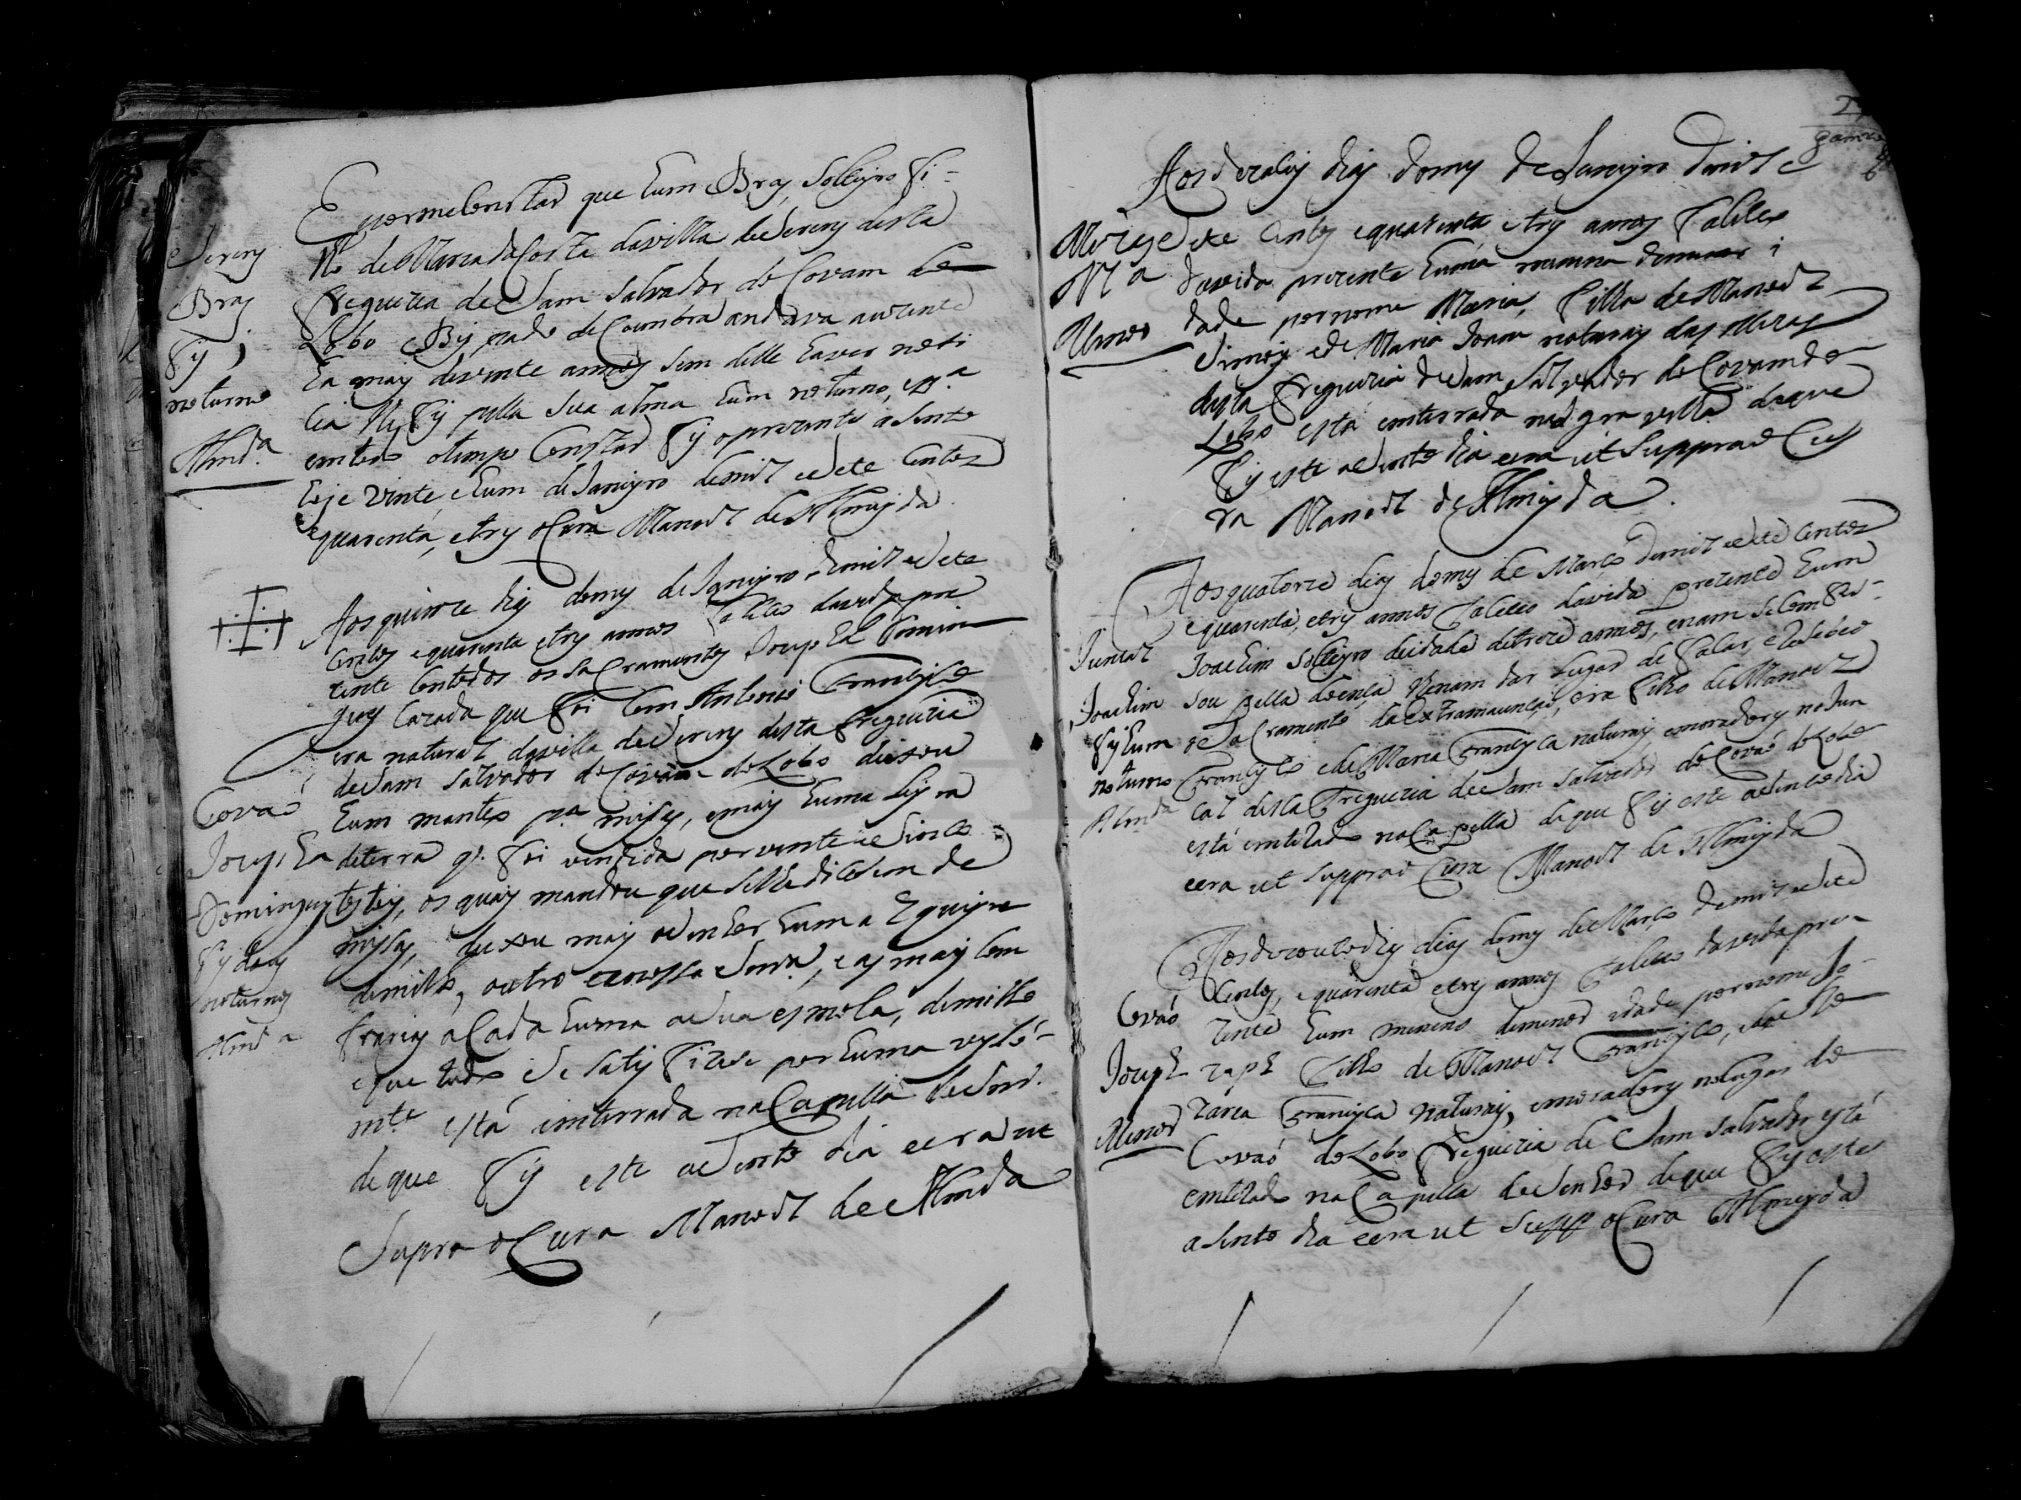 E porme Constar que hum Bras, Solteyro fi-
lho de Maria da Costa da villa de Serem desta
freguezia de Sam Salvador de Covam do
Lobo Bispado de Coimbra andava auzente
ha mais de vinte annos sem delle haver noti
cia lhe fis pella sua alma hum noturno, e p.ª
emtodo o tempo Constar fis o prezente asento
hoje vinte, e hum de Janeyro de mil e sete Centos
e quarenta, e tres o Cura Manoel de Almeyda
Serem
Bras
fis
noturno
Almd.ª
Aos quinze dias do mes de Janeyro de mil e sete
Centos e quarenta e tres annos faleceo da vida prez
tente Com todos os sacramentos Josepha Domin
gues Cazada que foi Com Antonio Francisco
era natural da villa de Serem desta freguezia
de Sam Salvador de Covam do Lobo deixou
hum manteo p.ª missas, e mais huma leyra
de terra q. foi vendida por vinte e sinco
tostois, os quais mandou que se lhe dicesem de
missas, deixou mais ao Senhor huma Equeyra
de milho, outro a nossa Snr.ª, e as mais Com
frarias a Cada huma a sua esmola, de milho
e que tudo se satisfizese por huma ves só-
m.te está enterrada na Capella do Snr.
de que fis este asento dia e era ut
Supra o Cura Manoel de Almeyda
Covaó
Josepha
Domingues
fis dous
noturnos
Almd.ª
Aos dezaseis dias do mes de Janeyro de mil e
sete Centos e quarenta e tres annos faleceo
da vida prezente huma menina de menor i
dade por nome Maria, filha de Manoel
Simois e de Maria Joam naturais das Mezas
desta freguezia de Sam Salvador de Covam do
Lobo está enterrada na Igra velha de que
fis este asento dia e era ut Suppra o Cu
ra Manoel de Almeyda
M.ª
Menor
Aos quatorze dias do mes de Março de mil e sete Centos
e quarenta, e tres annos faleceo da vida prezente hum
Joachim Solteyro de idade de treze annos, e nam se Confes-
sou pella doença nam dar lugar de falar, e Recebeo
o Sacramento da Extrama unçaó, era filho de Manoel
Francisco e de Maria Francisca naturais e moradores no Jun
cal desta freguezia de Sam Salvador de Covaó do Lobo
está enterrado na Capella de que fis este asento dia
e era ut suppra o Cura Manoel de Almeyda
Juncal
Joachim
fis hum
noturno
Almd.ª
Aos dezouto dias do mes de Março de mil e sete
Centos, e quarenta e tres annos faleceo da vida pre
zente hum menino de menor idade por nome Jo-
zeph filho de Manoel Francisco, e de Ma
ria Francisca naturais, e moradores no lugar de
Covaó do Lobo freguezia de Sam Salvador está
enterrado na Capella do Senhor de que fis este
asento dia e era ut Supp o Cura Almeyda
Covaó
Joseph
Menor